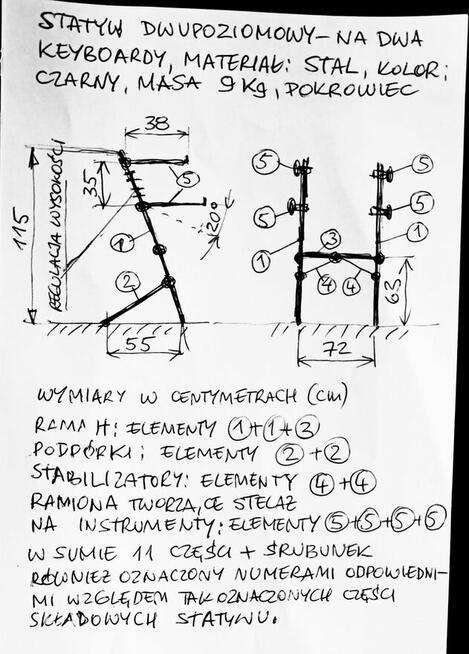 STATYW DWUPOZIOMOWY - NA DWA
KEYBOARDY, MATERIAŁ: STAL, KOLOR:
CZARNY, MASA 9 Kg, POKROWIEC
38
35
115
REGULACJA WYSOKOŚCI
5
20°
1
2
55
5
5
5
5
1
3
1
4
4
63
72
WYMIARY W CENTYMETRACH (cm)
RAMA H: ELEMENTY 1+1+3
PODPÓRKI: ELEMENTY 2+2
STABILIZATORY: ELEMENTY 4+4
RAMIONA TWORZĄCE STELAŻ
NA INSTRUMENTY: ELEMENTY 5+5+5+5
W SUMIE 11 CZĘŚCI + ŚRUBUNEK
RÓWNIEŻ OZNACZONY NUMERAMI ODPOWIEDNI-
MI WZGLĘDEM TAK OZNACZONYCH CZĘŚCI
SKŁADOWYCH STATYWU.